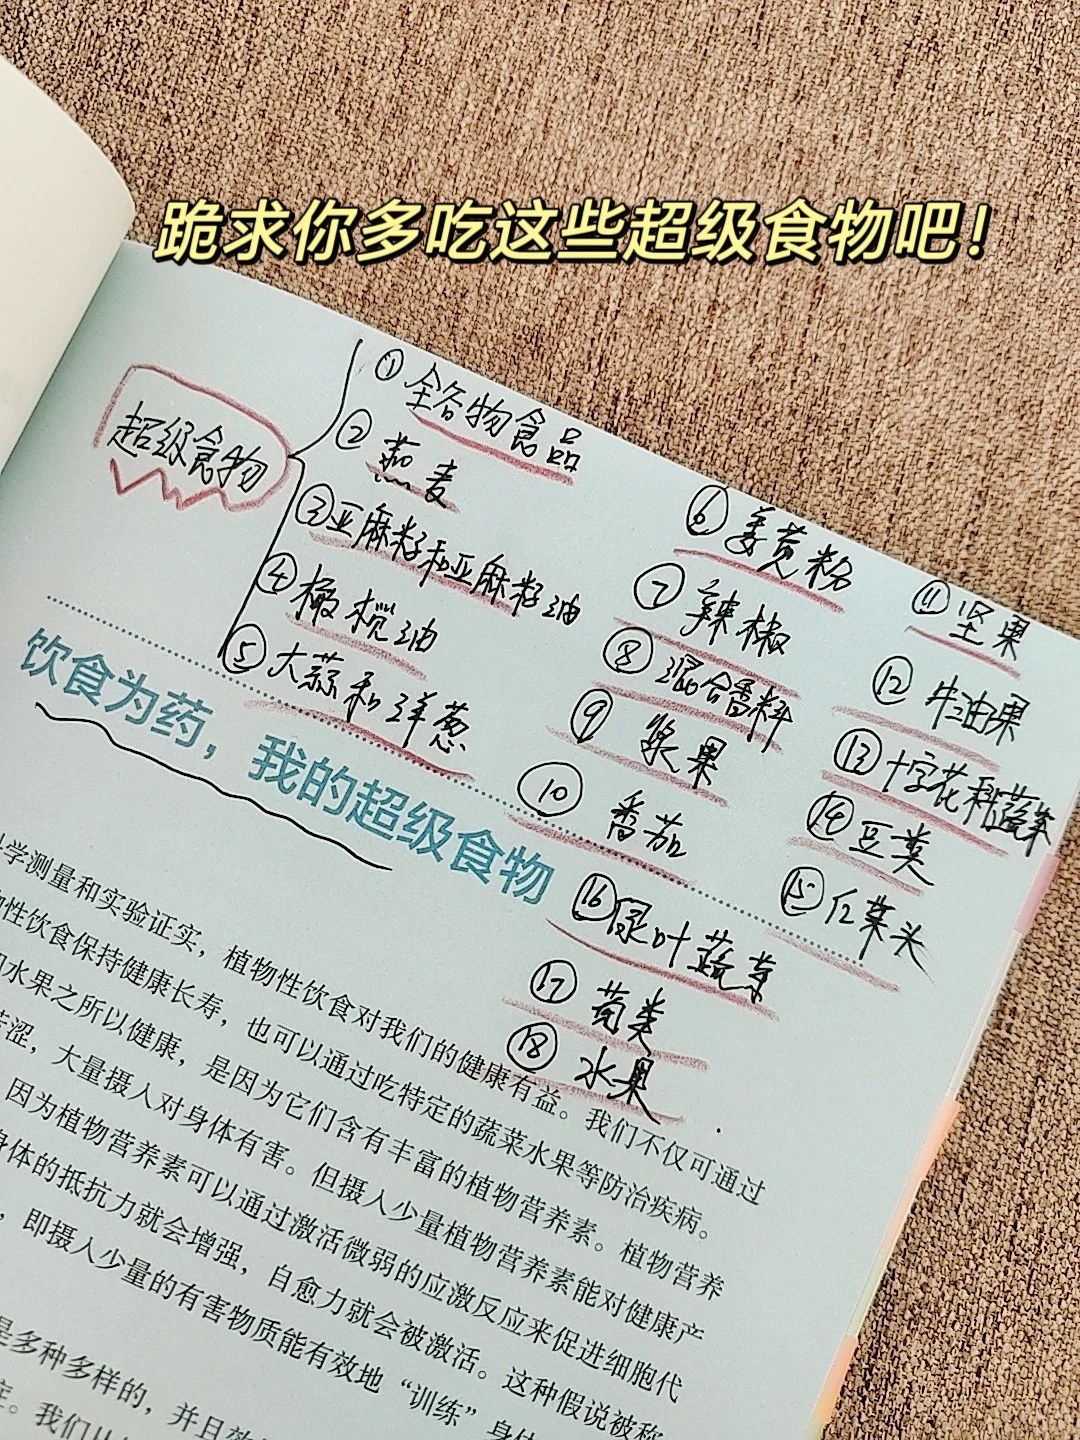 跪求你多吃这些超级食物吧！
超级食物
①全谷物食品
②燕麦
③亚麻籽和亚麻籽油
④橄榄油
⑤大蒜和洋葱
⑥姜黄粉
⑦辣椒
⑧混合香料
⑨浆果
⑩番茄
⑪坚果
⑫牛油果
⑬十字花科蔬菜
⑭豆类
⑮红菜头
⑯绿叶蔬菜
⑰菊类
⑱水果
饮食为药，我的超级食物
学测量和实验证实，植物性饮食对我们的健康有益。我们不仅可通过
性饮食保持健康长寿，也可以通过吃特定的蔬菜水果等防治疾病。
水果之所以健康，是因为它们含有丰富的植物营养素。植物营养
苦涩，大量摄入对身体有害。但摄入少量植物营养素能对健康产
因为植物营养素可以通过激活微弱的应激反应来促进细胞代
身体的抵抗力就会增强，自愈力就会被激活。这种假说被称
，即摄入少量的有害物质能有效地“训练”身
是多种多样的，并且
。我们